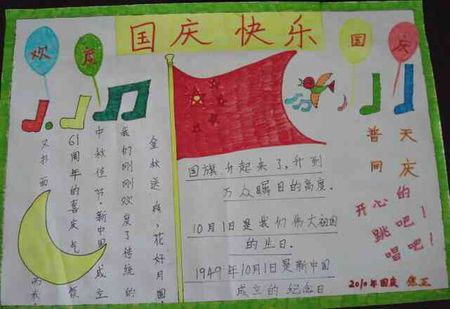 国庆快乐
欢度
国庆
金秋送爽,花好月圆
我们刚刚欢度了传统的
中秋佳节,新中国成立
61周年的喜庆气
又扑面
国旗升起来了,升到
万众瞩目的高度。
10月1日是我们伟大祖国
的生日。
1949年10月1日是新中国
成立的纪念日
普天
同庆
开心的
跳吧!
唱吧!
2010年国庆